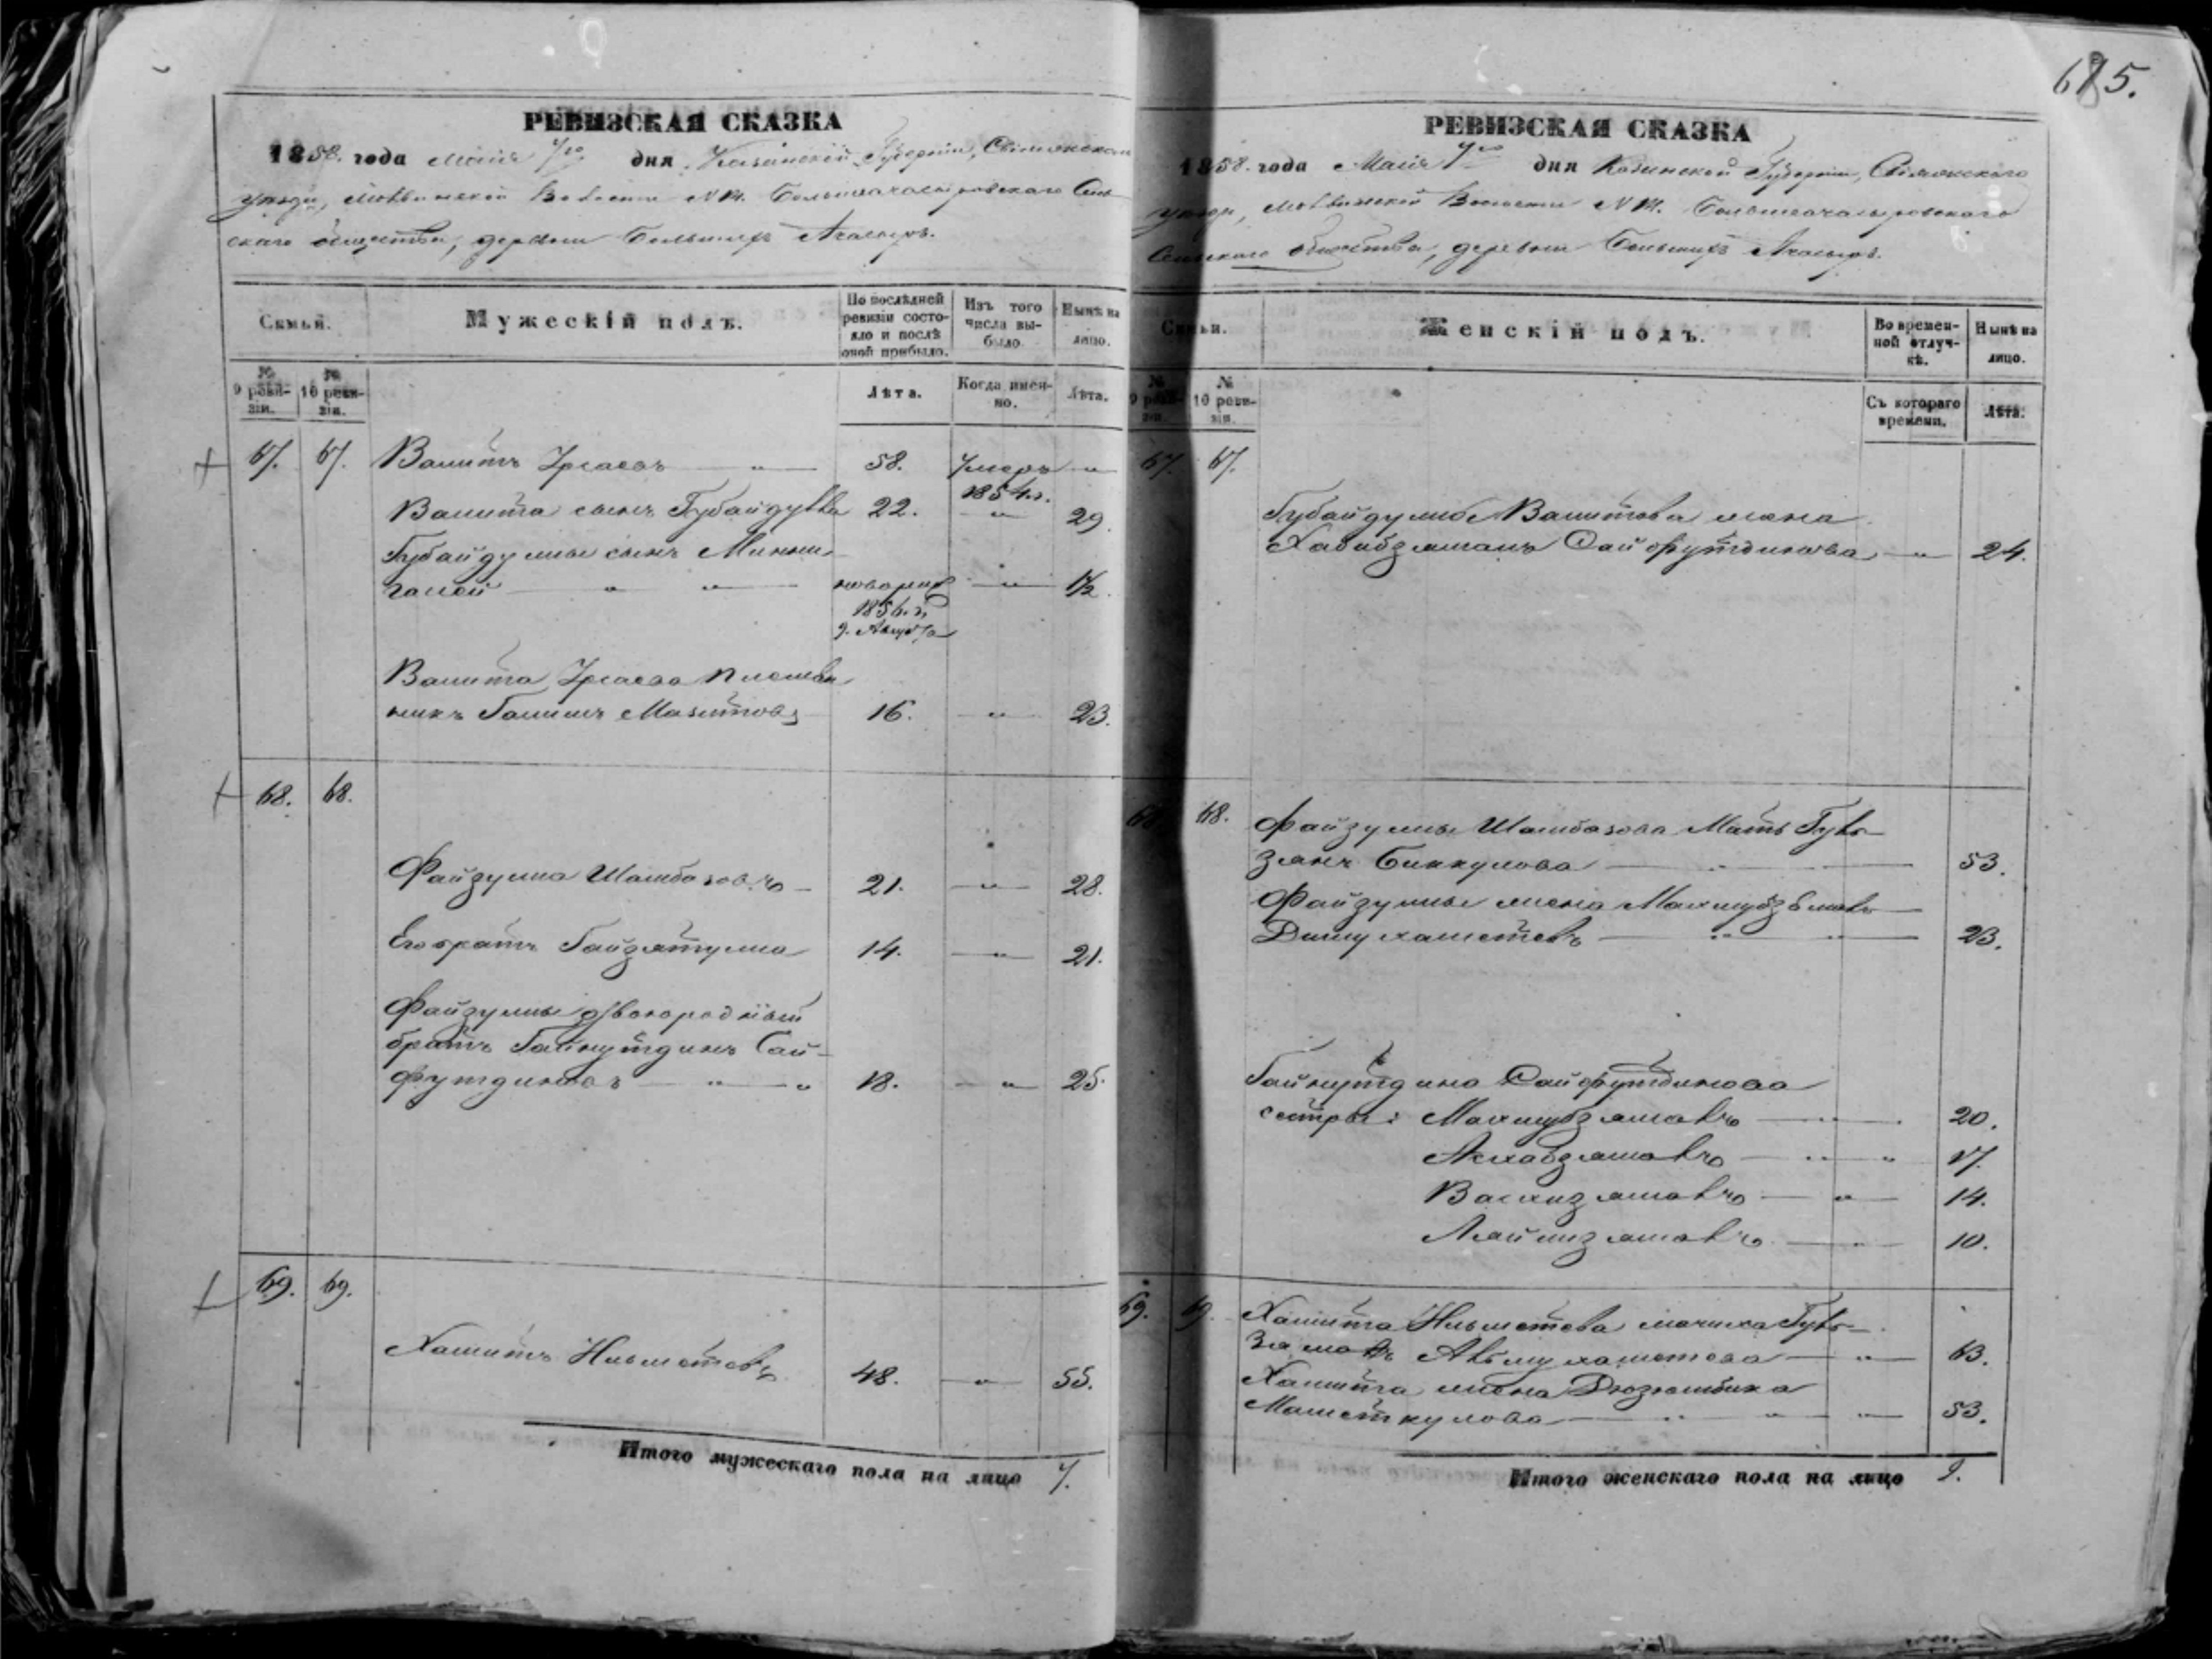 685.
РЕВИЗСКАЯ СКАЗКА
1858. года Маія 7го дня Казанской Губерніи, Свіяжскаго
уѣзда, Волости № Большеачасыровскаго Сель-
скаго общества, деревни Большихъ Ачасыръ.
Семьи.
Мужескій полъ.
По послѣдней ревизіи состо-яло и послѣ оной прибыло.
Изъ того числа вы-было.
Нынѣ на лицо.
№ 9 реви-зіи.
№ 10 реви-зіи.
Лѣта.
Когда имен-но.
Лѣта.
67. 67. Валитъ 58. Умеръ "
1854.г.
Валита сынъ Губайдулла 22. " 29.
Губайдуллы сынъ Минни-
галей " " новорож 1½.
1856.г.
9. Августа
Валита племян-
никъ Галимъ Мазитовъ 16. " 23.
68. 68.
Файзулла Шамбазовъ 21. " 28.
Его братъ Гайзятулла 14. " 21.
Файзуллы двоюродный
братъ Гайнутдинъ Сай-
футдиновъ " " 18. " 25.
69. 69.
Хамитъ Ильметевъ 48. " 55.
Итого мужескаго пола на лицо 7.
РЕВИЗСКАЯ СКАЗКА
1858. года Маія 7го дня Казанской Губерніи, Свіяжскаго
уѣзда, Волости № Большеачасыровскаго
Сельскаго общества, деревни Большихъ Ачасыръ.
Семьи.
Женскій полъ.
Во времен-ной отлуч-кѣ.
Нынѣ на лицо.
№ 9 реви-зіи.
№ 10 реви-зіи.
Съ котораго времени.
Лѣта.
67. 67.
Губайдуллы Валитова жена
Хабибзямалъ Сайфутдинова " 24.
68. 68. Файзуллы Шамбазова Мать Гуль-
зянъ Биккулова 53.
Файзуллы жена
23.
Гайнутдина Сайфутдинова
сестры: Махубзямалъ 20.
17.
14.
10.
69. 69. Хамита Ильметева мачиха Гуль-
замалъ 63.
Хамита жена Дюзюмбика
Маметкулова " " 53.
Итого женскаго пола на лицо 9.